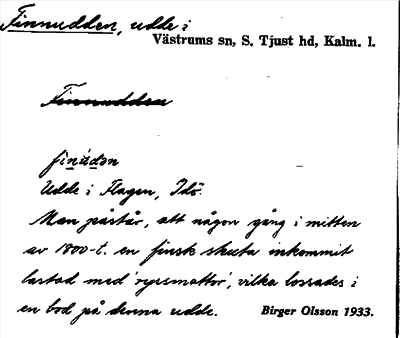 Finnudden, udde i
Västrums sn, S. Tjust hd, Kalm. l.
Finnudden
finúdən
Udde i Flagen, Idö.
Man påstår, att någon gång i mitten
av 1800-t. en finsk skuta inkommit
lastad med 'ryssmattor', vilka lossades i
en bod på denna udde. Birger Olsson 1933.